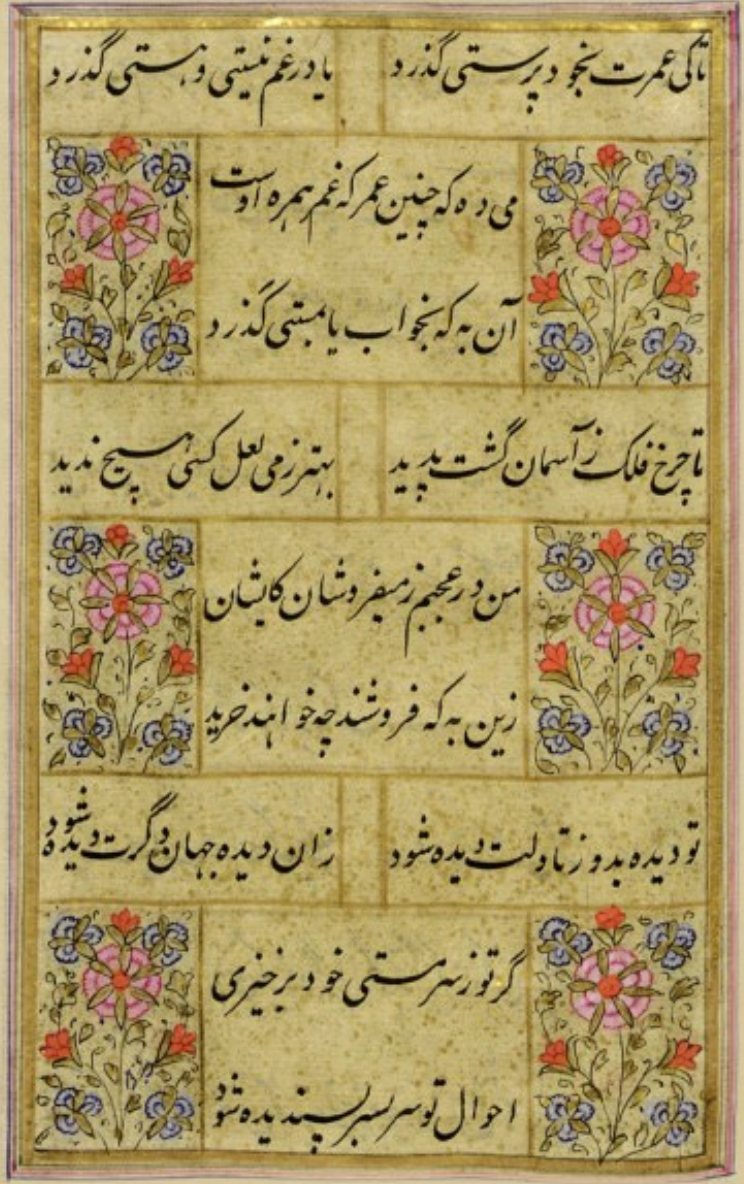 تا کی عمرت بخود پرستی گذرد
یا در غم نیستی و هستی گذرد
می ده که چنین عمر که غم همره اوست
آن به که بخواب یا بمستی گذرد
تا چرخ فلک ز آسمان گشت پدید
بهتر ز می لعل کسی هیچ ندید
من در عجبم ز میفروشان کایشان
زین به که فروشند چه خواهند خرید
تو دیده بدوز تا دلت دیده شود
زان دیده جهان دگرت دیده شود
گر تو ز سر مستی خود برخیزی
احوال تو سر بسر پسندیده شود